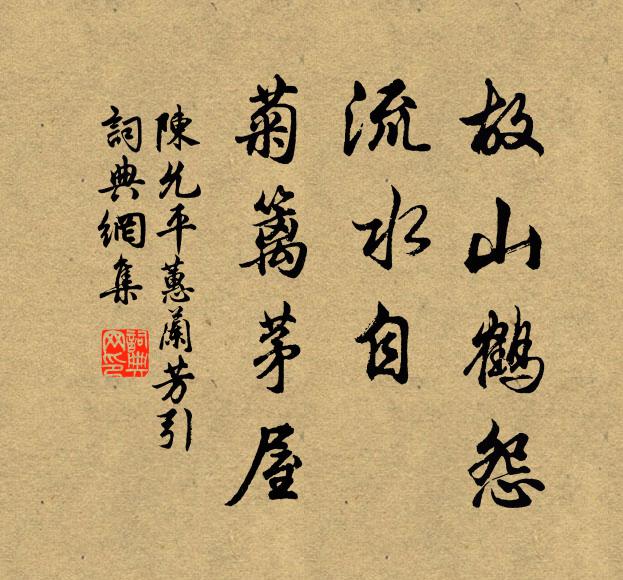 故山鶴怨
流水自
菊篱茅屋
陳允平蕙蘭芳引
詞典網集
詞典
网印